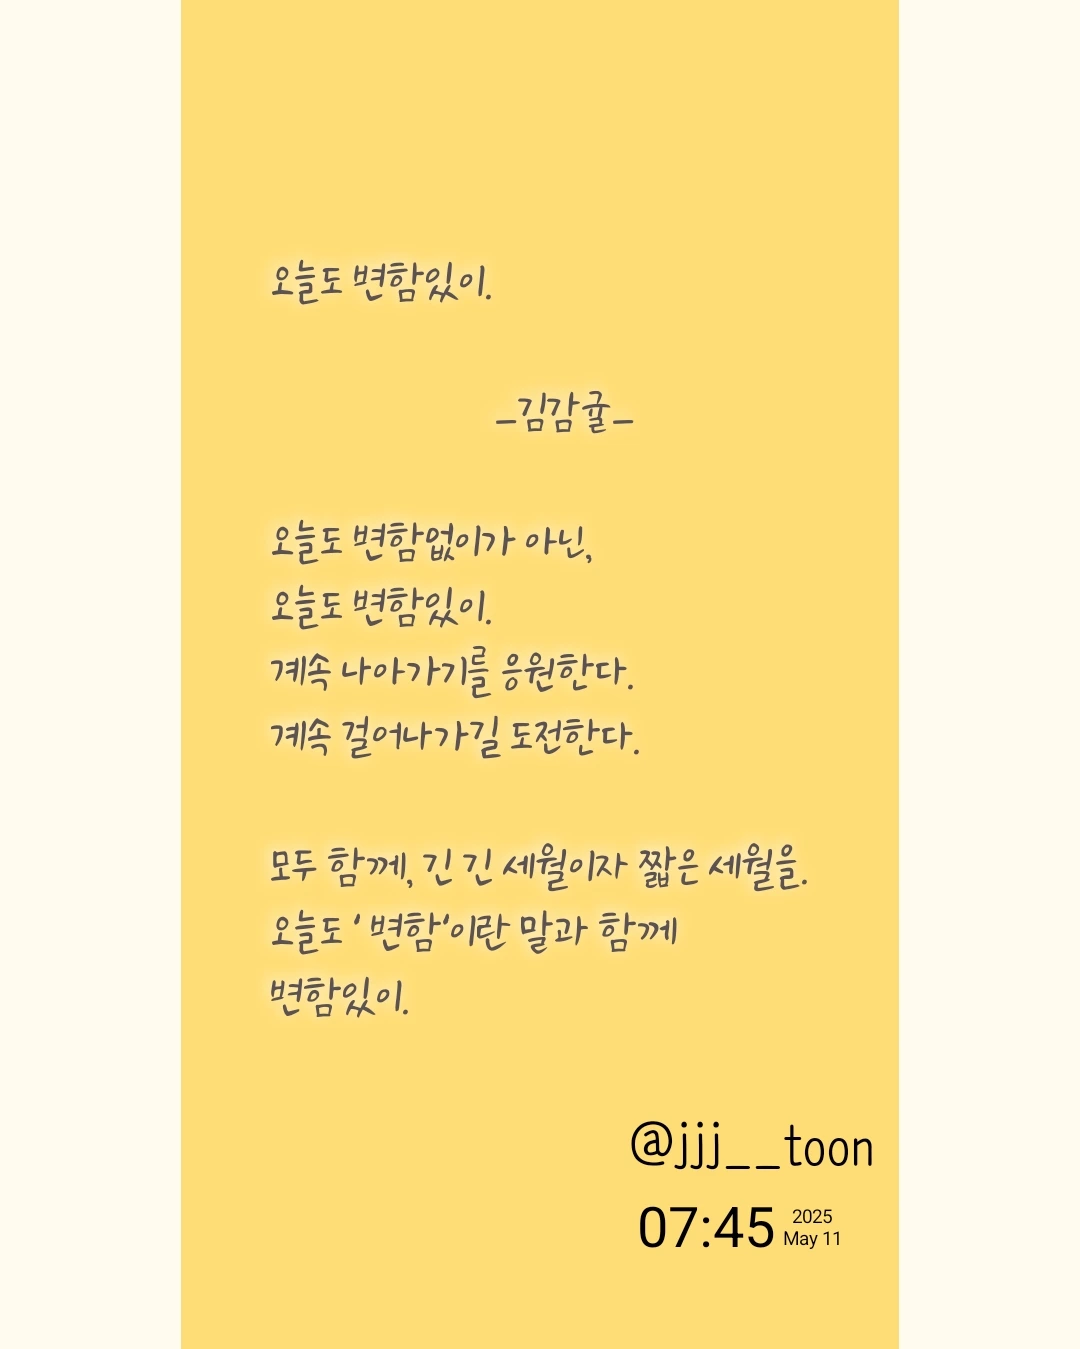 오늘도 변함있이.
_김감귤_
오늘도 변함없이가 아닌,
오늘도 변함있이.
계속 나아가기를 응원한다.
계속 걸어나가길 도전한다.
모두 함께, 긴 긴 세월이자 짧은 세월을.
오늘도 ' 변함'이란 말과 함께
변함있이.
@jjj__toon
07:45 2025
May 11